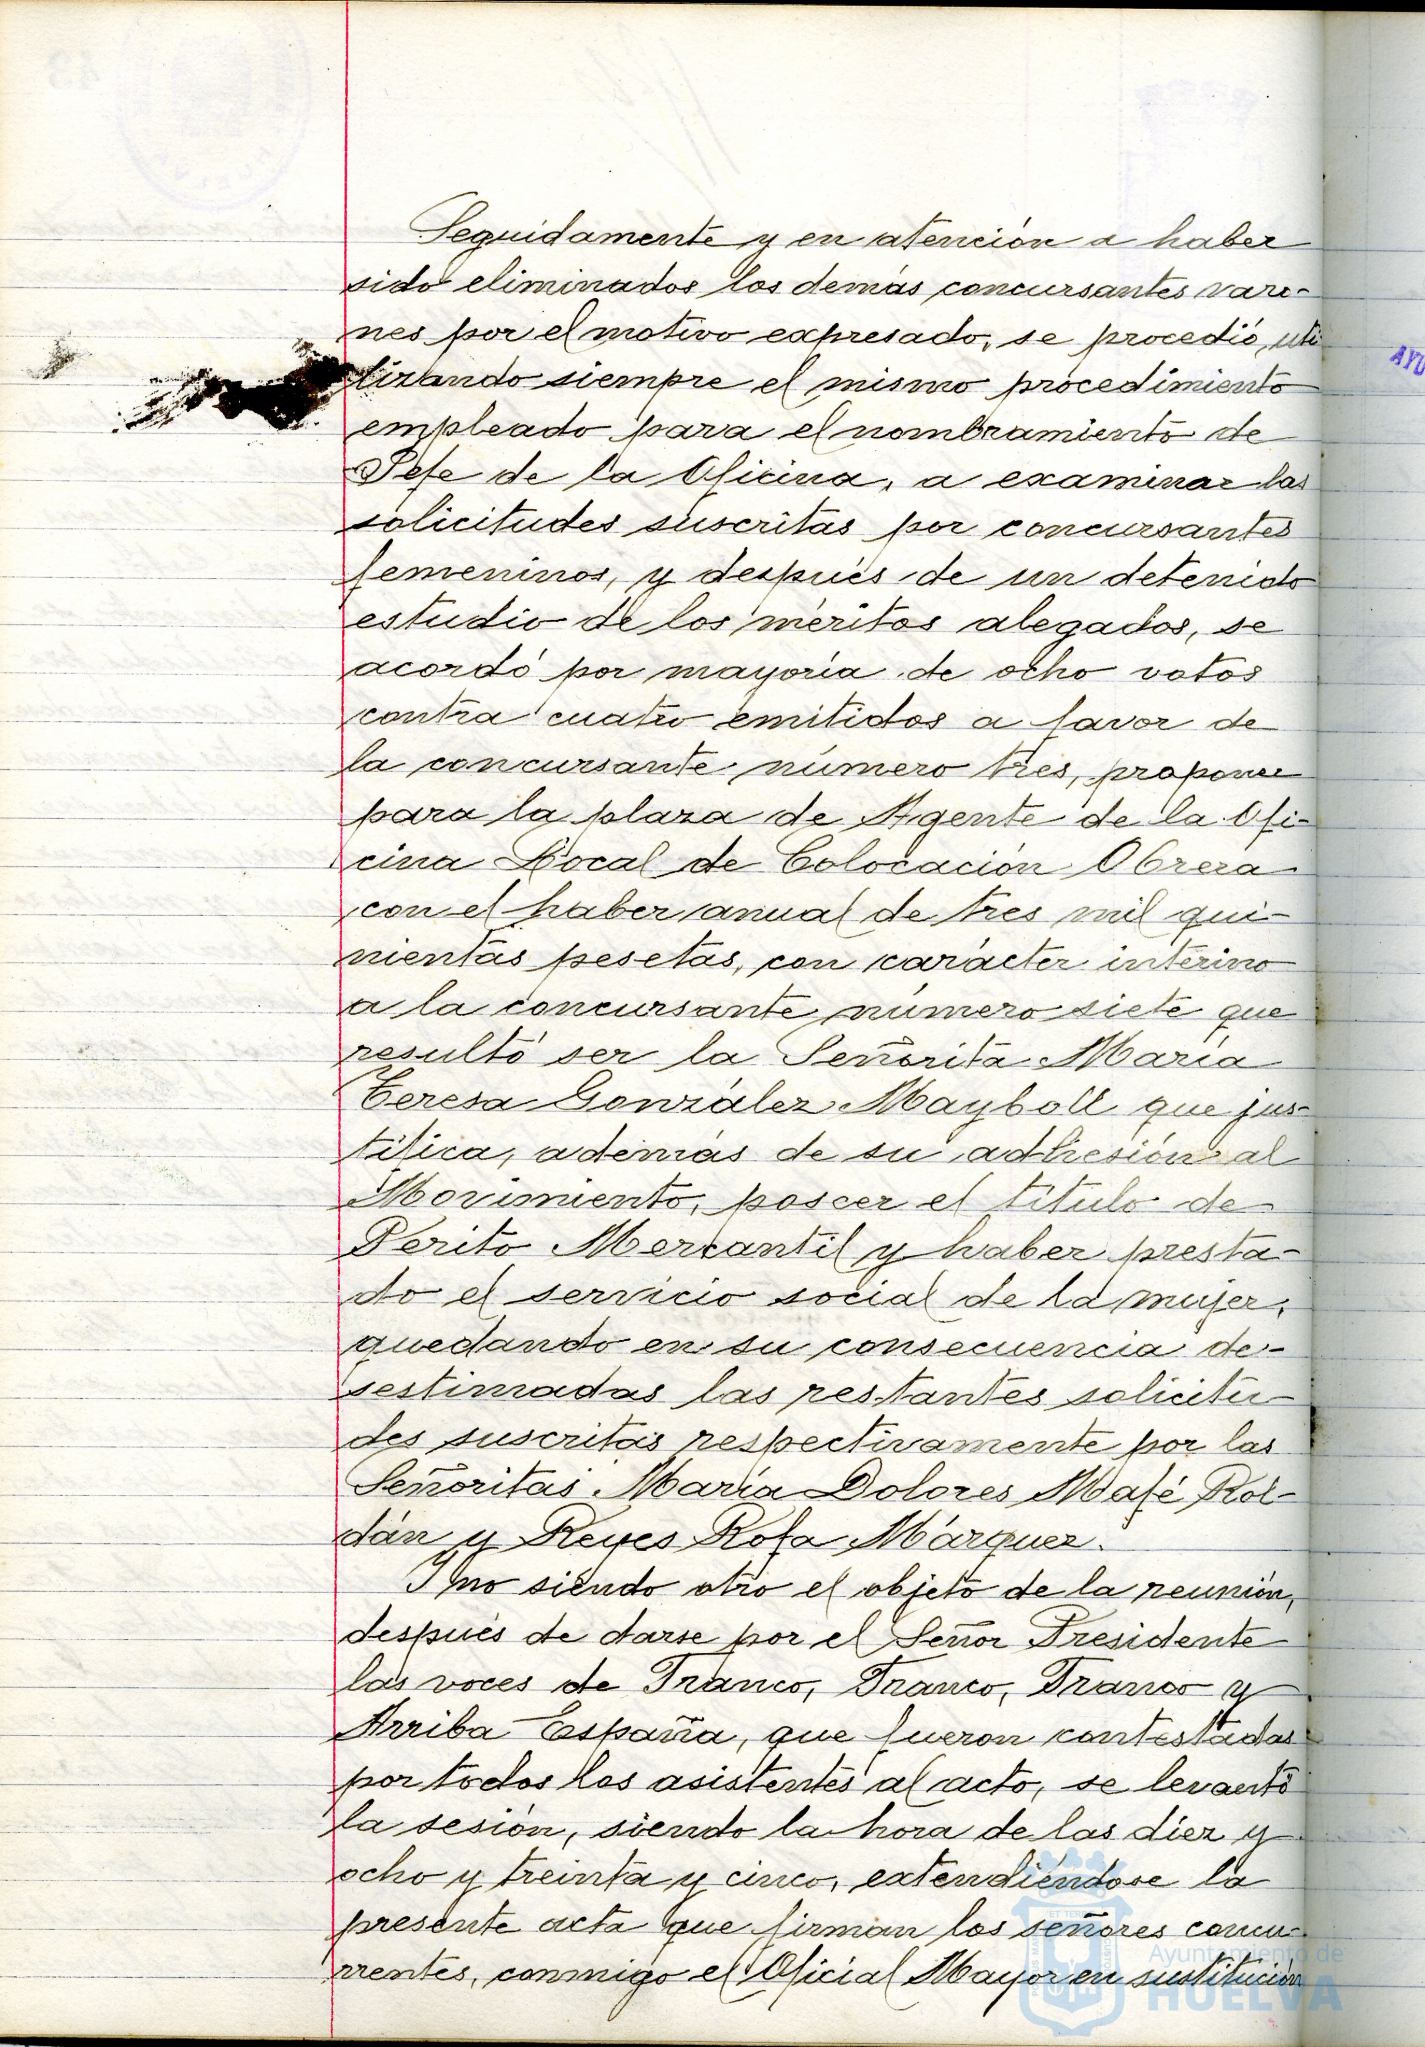 Seguidamente y en atención a haber
sido eliminados los demás concursantes varo-
nes por el motivo expresado, se procedió, uti
lizando siempre el mismo procedimiento
empleado para el nombramiento de
Jefe de la Oficina, a examinar las
solicitudes suscritas por concursantes
femeninos, y después de un detenido
estudio de los méritos alegados, se
acordó por mayoría de ocho votos
contra cuatro emitidos a favor de
la concursante número tres, proponer
para la plaza de Agente de la Ofi-
cina Local de Colocación Obrera
con el haber anual de tres mil qui-
nientas pesetas, con carácter interino
a la concursante número siete que
resultó ser la Señorita María
Teresa González Mayboll que jus-
tifica, además de su adhesión al
Movimiento, poseer el título de
Perito Mercantil y haber presta-
do el servicio social de la mujer,
quedando en su consecuencia de-
sestimadas las restantes solicitu-
des suscritas respectivamente por las
Señoritas María Dolores Mafé Rol-
dán y Reyes Rofa Márquez.
Y no siendo otro el objeto de la reunión,
después de darse por el Señor Presidente
las voces de Franco, Franco, Franco y
Arriba España, que fueron contestadas
por todos los asistentes al acto, se levantó
la sesión, siendo la hora de las diez y
ocho y treinta y cinco, extendiéndose la
presente acta que firman los señores concu-
rrentes, conmigo el Oficial Mayor en sustitución
Ayuntamiento de
HUELVA